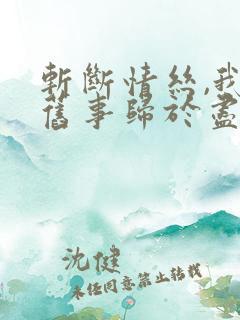 斬斷情絲,我
舊事歸於盡
沈健
未经同意禁止转载